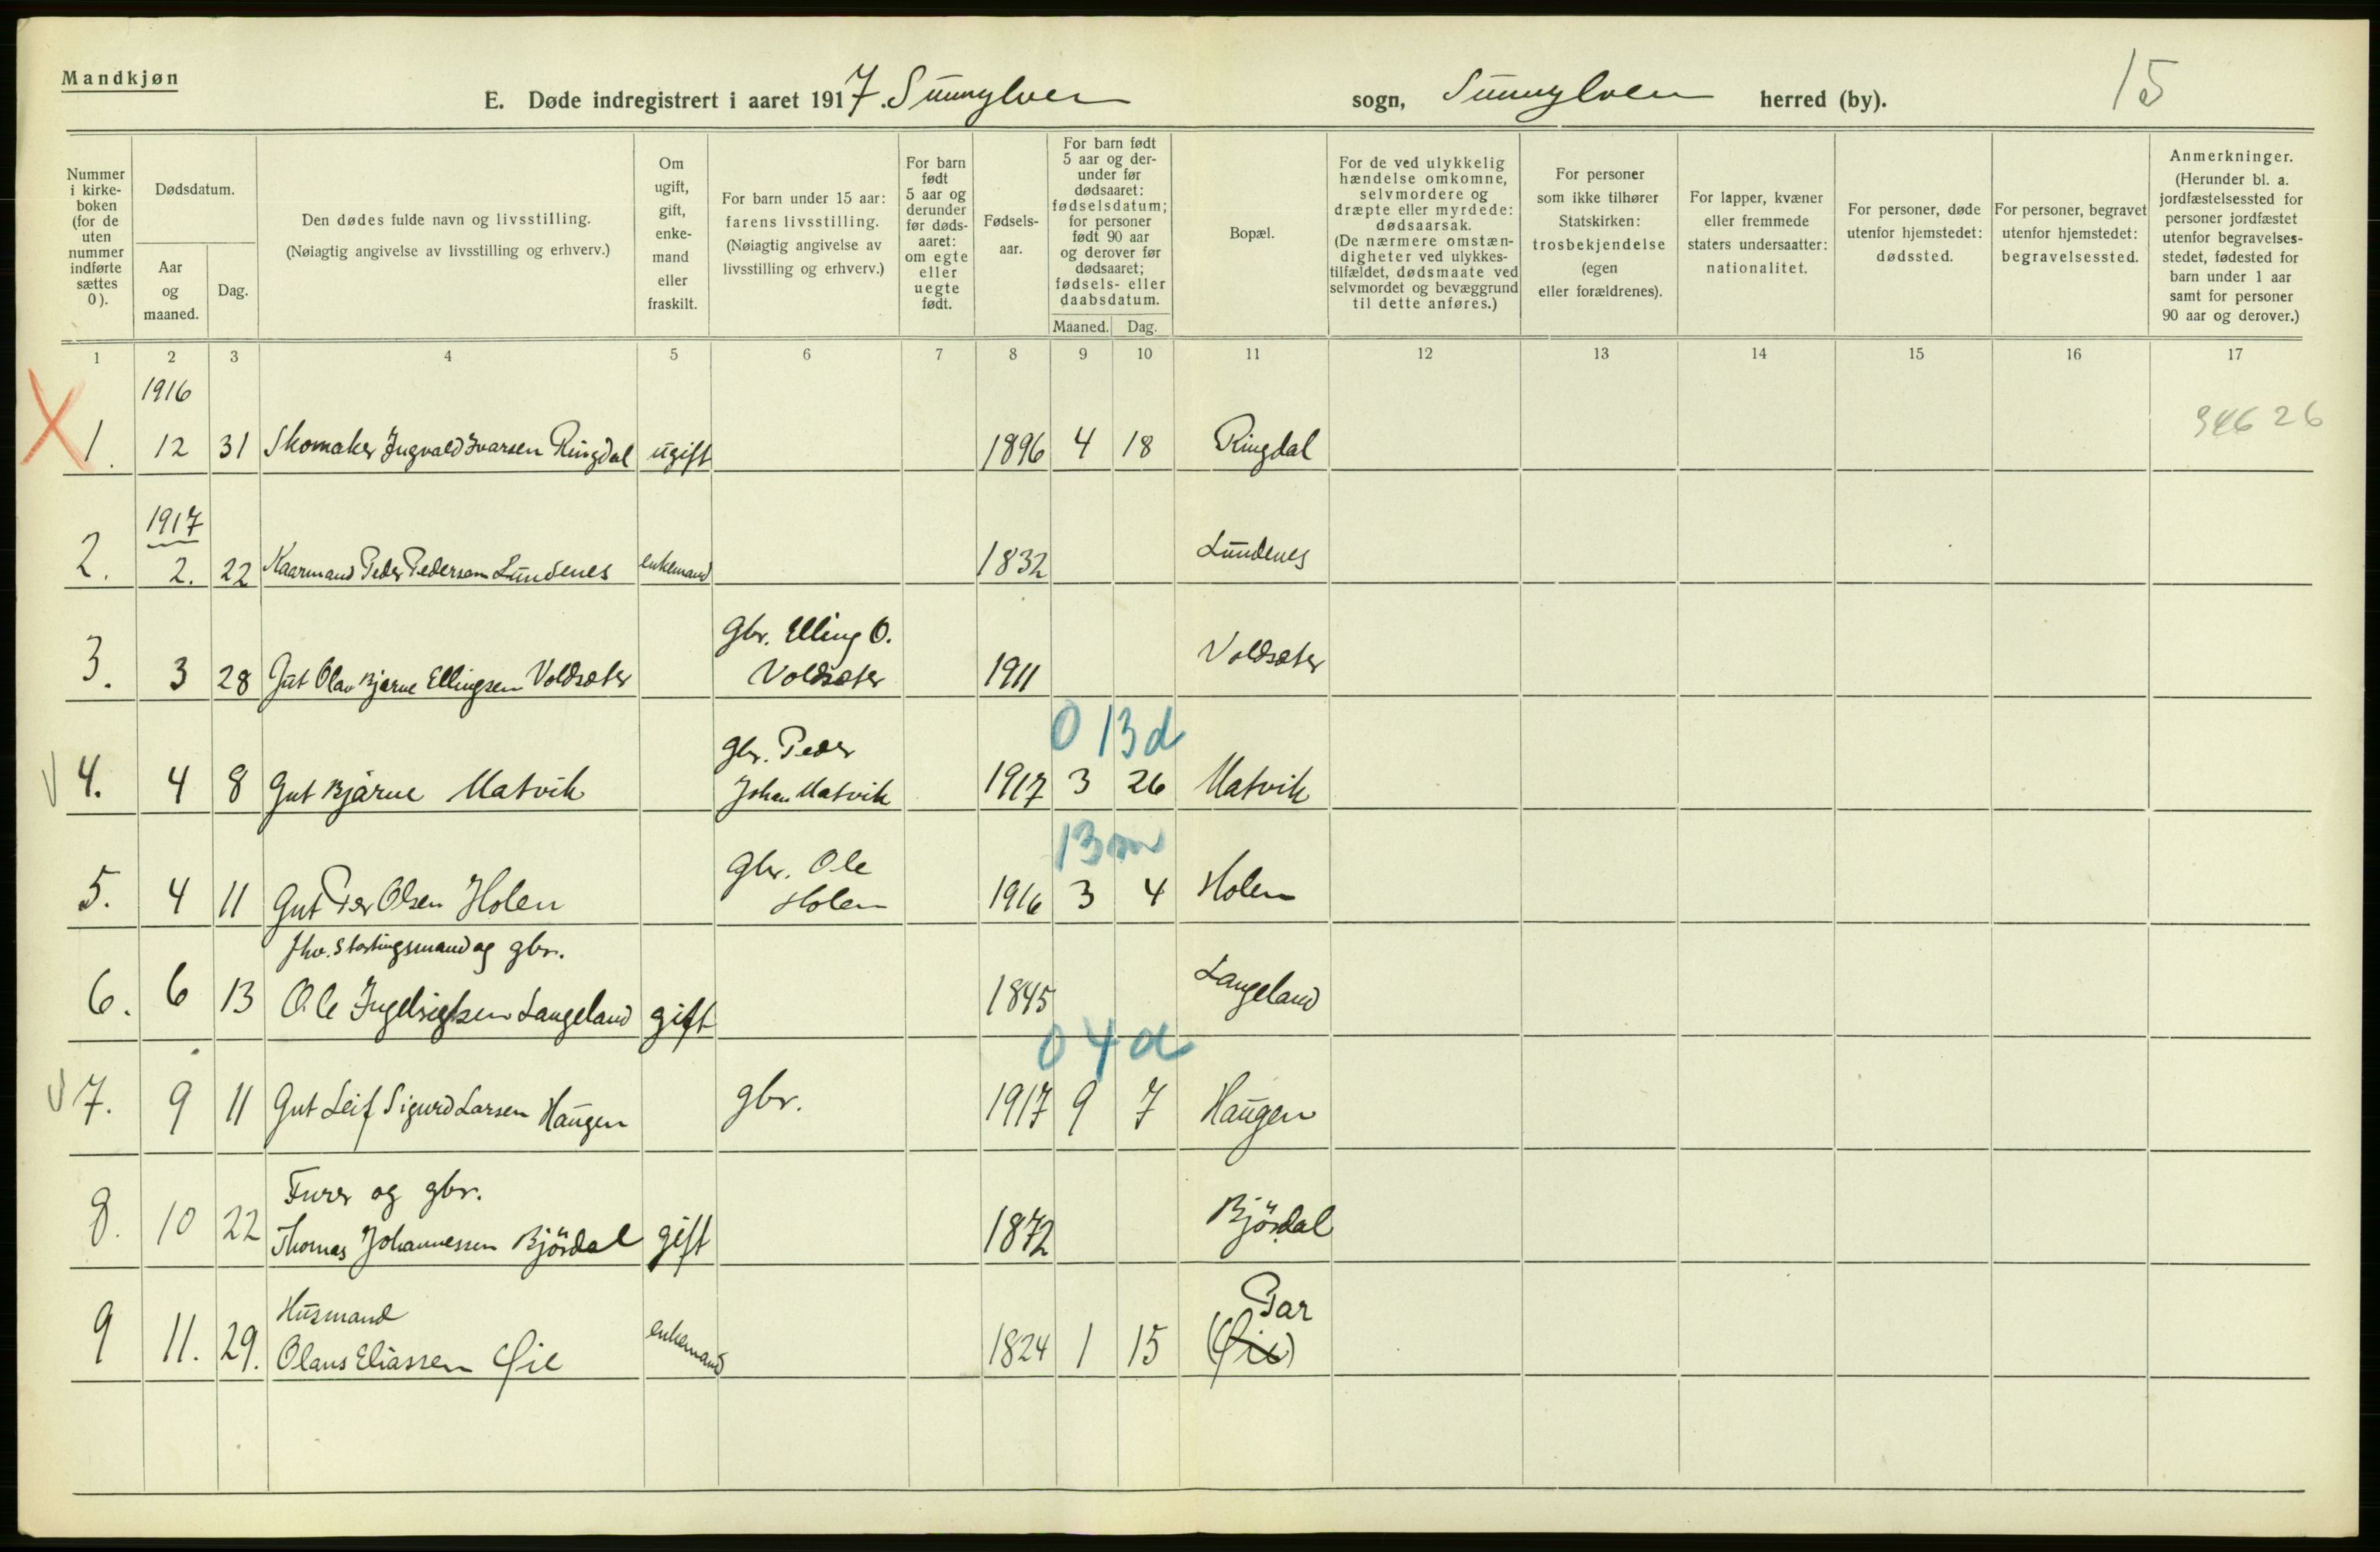 Mandkjøn
15
E. Døde indregistrert i aaret 1917. Sunnylven sogn, Sunnylven herred (by).
Nummer i kirke-boken (for de uten nummer indførte sættes 0).
Dødsdatum.
Aar og maaned.
Dag.
Den dødes fulde navn og livsstilling.
(Nøiagtig angivelse av livsstilling og erhverv.)
Om ugift, gift, enke-mand eller fraskilt.
For barn under 15 aar: farens livsstilling. (Nøiagtig angivelse av livsstilling og erhverv.)
For barn født 5 aar og derunder før døds-aaret: om egte eller uegte født.
Fødsels-aar.
For barn født 5 aar og der-under før dødsaaret: fødselsdatum; for personer født 90 aar og derover før dødsaaret; fødsels- eller daabsdatum.
Maaned. Dag.
Bopæl.
For de ved ulykkelig hændelse omkomne, selvmordere og dræpte eller myrdede: dødsaarsak. (De nærmere omstæn-digheter ved ulykkes-tilfældet, dødsmaate ved selvmordet og bevæggrund til dette anføres.)
For personer som ikke tilhører Statskirken: trosbekjendelse (egen eller forældrenes).
For lapper, kvæner eller fremmede staters undersaatter: nationalitet.
For personer, døde utenfor hjemstedet: dødssted.
For personer, begravet utenfor hjemstedet: begravelsessted.
Anmerkninger. (Herunder bl. a. jordfæstelsessted for personer jordfæstet utenfor begravelses-stedet, fødested for barn under 1 aar samt for personer 90 aar og derover.)
1 2 3 4 5 6 7 8 9 10 11 12 13 14 15 16 17
1916
X 1. 12 31 Skomaker Ingvald Ivarsen Ringdal ugift 1896 4 18 Ringdal
1917
2. 2. 22 Kaarmand Peder Pedersen Lundenes enkemand 1832 Lundenes
gbr. Elling O.
3. 3 28 Gut Olav Bjarne Ellingsen Voldsæter Voldsæter 1911 Voldsæter
0 13 d
gbr. Peder
4. 4 8 Gut Bjarne Matvik Johan Matvik 1917 3 26 Matvik
13 m
gbr. Ole
5. 4 11 Gut Per Olsen Holen Holen 1916 3 4 Holen
fhv. Stortingsmand og gbr.
6. 6 13 Ole Ingebrigtsen Langeland gift 1845 Langeland
0 4 d
7. 9 11 Gut Leif Sigurd Larsen Haugen gbr. 1917 9 7 Haugen
Furer og gbr.
8. 10 22 Thomas Johannessen Björdal gift 1872 Björdal
Husmand
9 11. 29. Olaus Eliassen Øie enkemand 1824 1 15 (Øie)